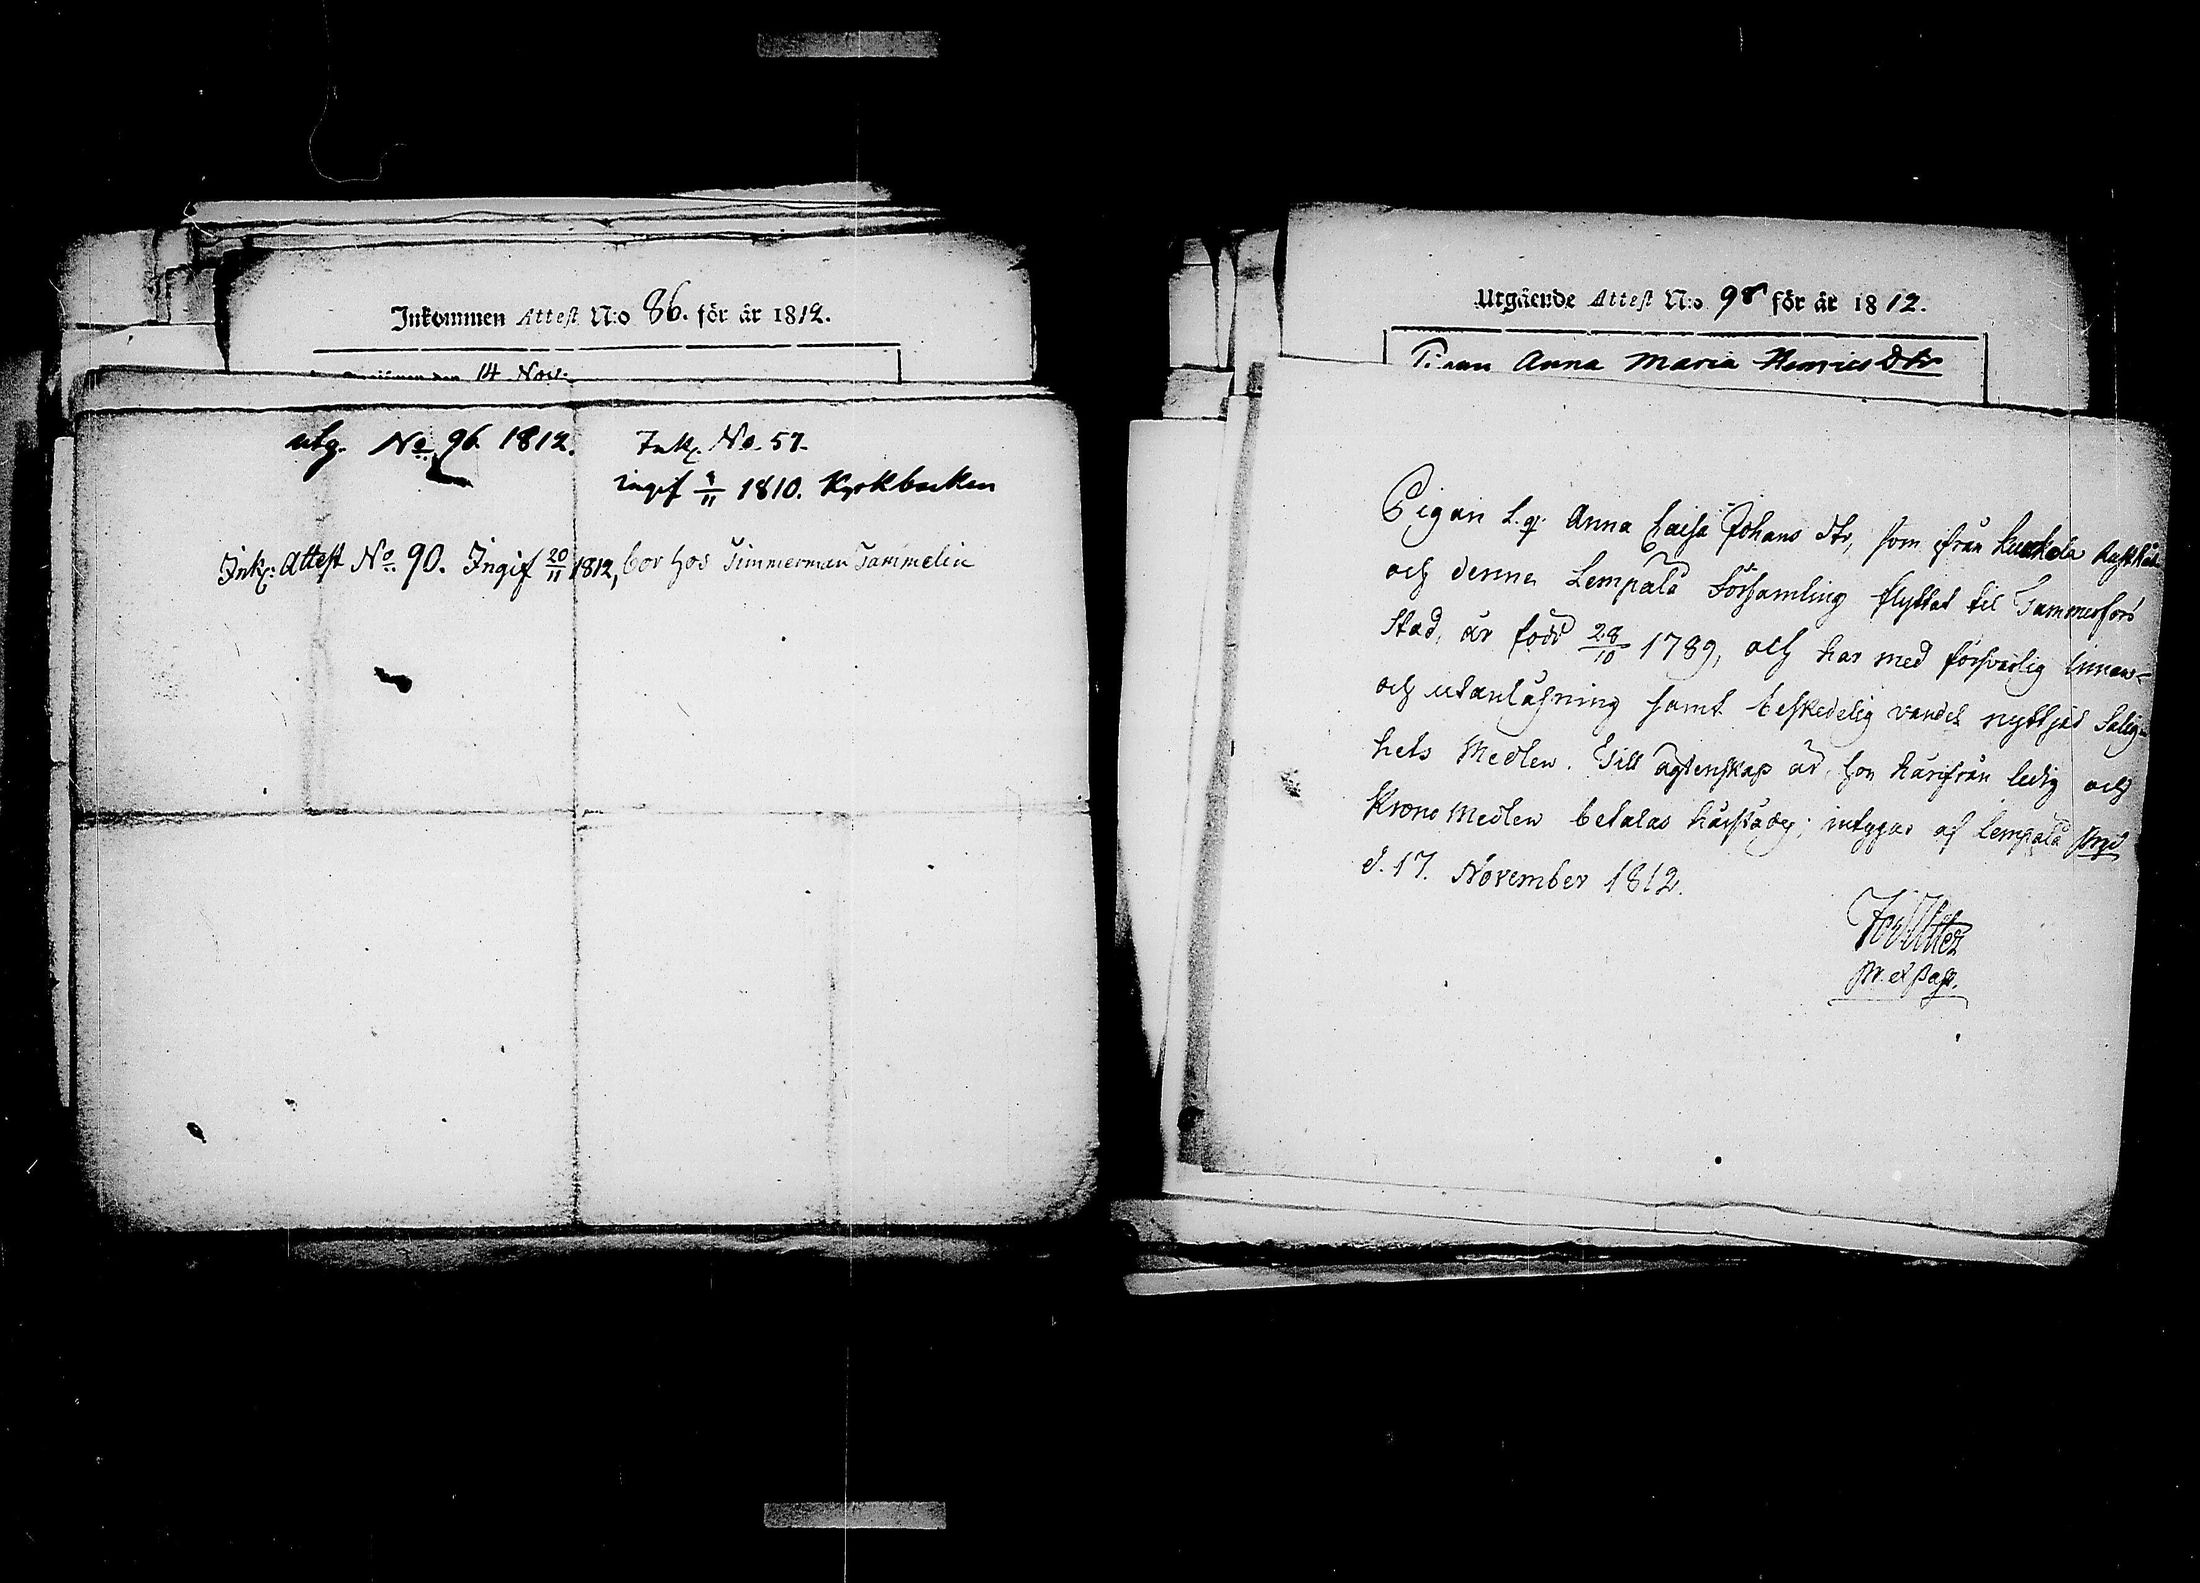 Inkommen Attest N:o 86. för år 1812.
14 Nov.
utg. No 96 1812.
Ink. No. 57.
ingif 1/11 1810. Kyrkbacken
Ink: Attest No 90. Ingif 20/11 1812, bor hos Timmerman Tammelin
Utgående Attest N:o 98 för år 1812.
Pigan Anna Maria Henrics Dtr
Pigan L. q. Anna Caisa Johans dtr, som ifrån Kuokola
och denne Lempälä Församling flyttat til Tammerfors
Stad, är född 28/10 1789, och har med försvarlig innan-
och utanläsning samt beskedelig vandel nyttjat Salig-
hets Medlen. Till ägtenskap är hon härifrån ledig och
Krono Medlen betalas härstädes; intygar af Lempälä Prgd
d. 17. November 1812.
Pr. et Past.